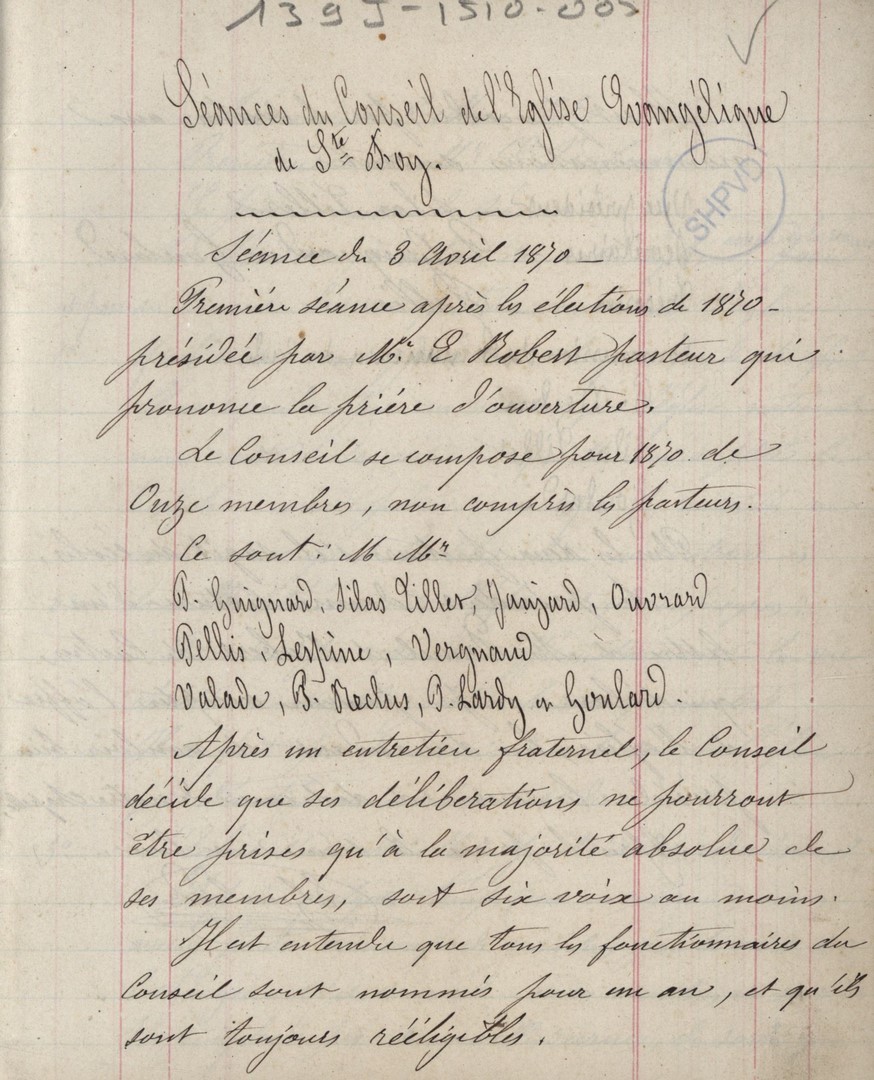 139J-1510-005
Séances du Conseil de l'Eglise Evangélique
de Ste Foy.
SHPVD
Séance du 3 Avril 1870 —
Première séance après les élections de 1870 -
présidée par Mr. E Robert pasteur qui
prononce la prière d'ouverture.
Le Conseil se compose pour 1870 de
Onze membres, non compris les pasteurs.
Ce sont: M Mrs
P. Guignard, Silas Tillet, Janjard, Ouvrard
Pellis, Lespine, Vergnaud
Valade, B. Reclus, P. Lardy et Goulard.
Après un entretien fraternel, le Conseil
décide que ses délibérations ne pourront
être prises qu'à la majorité absolue de
ses membres, soit six voix au moins.
Il est entendu que tous les fonctionnaires du
Conseil sont nommés pour un an, et qu'ils
sont toujours rééligibles.